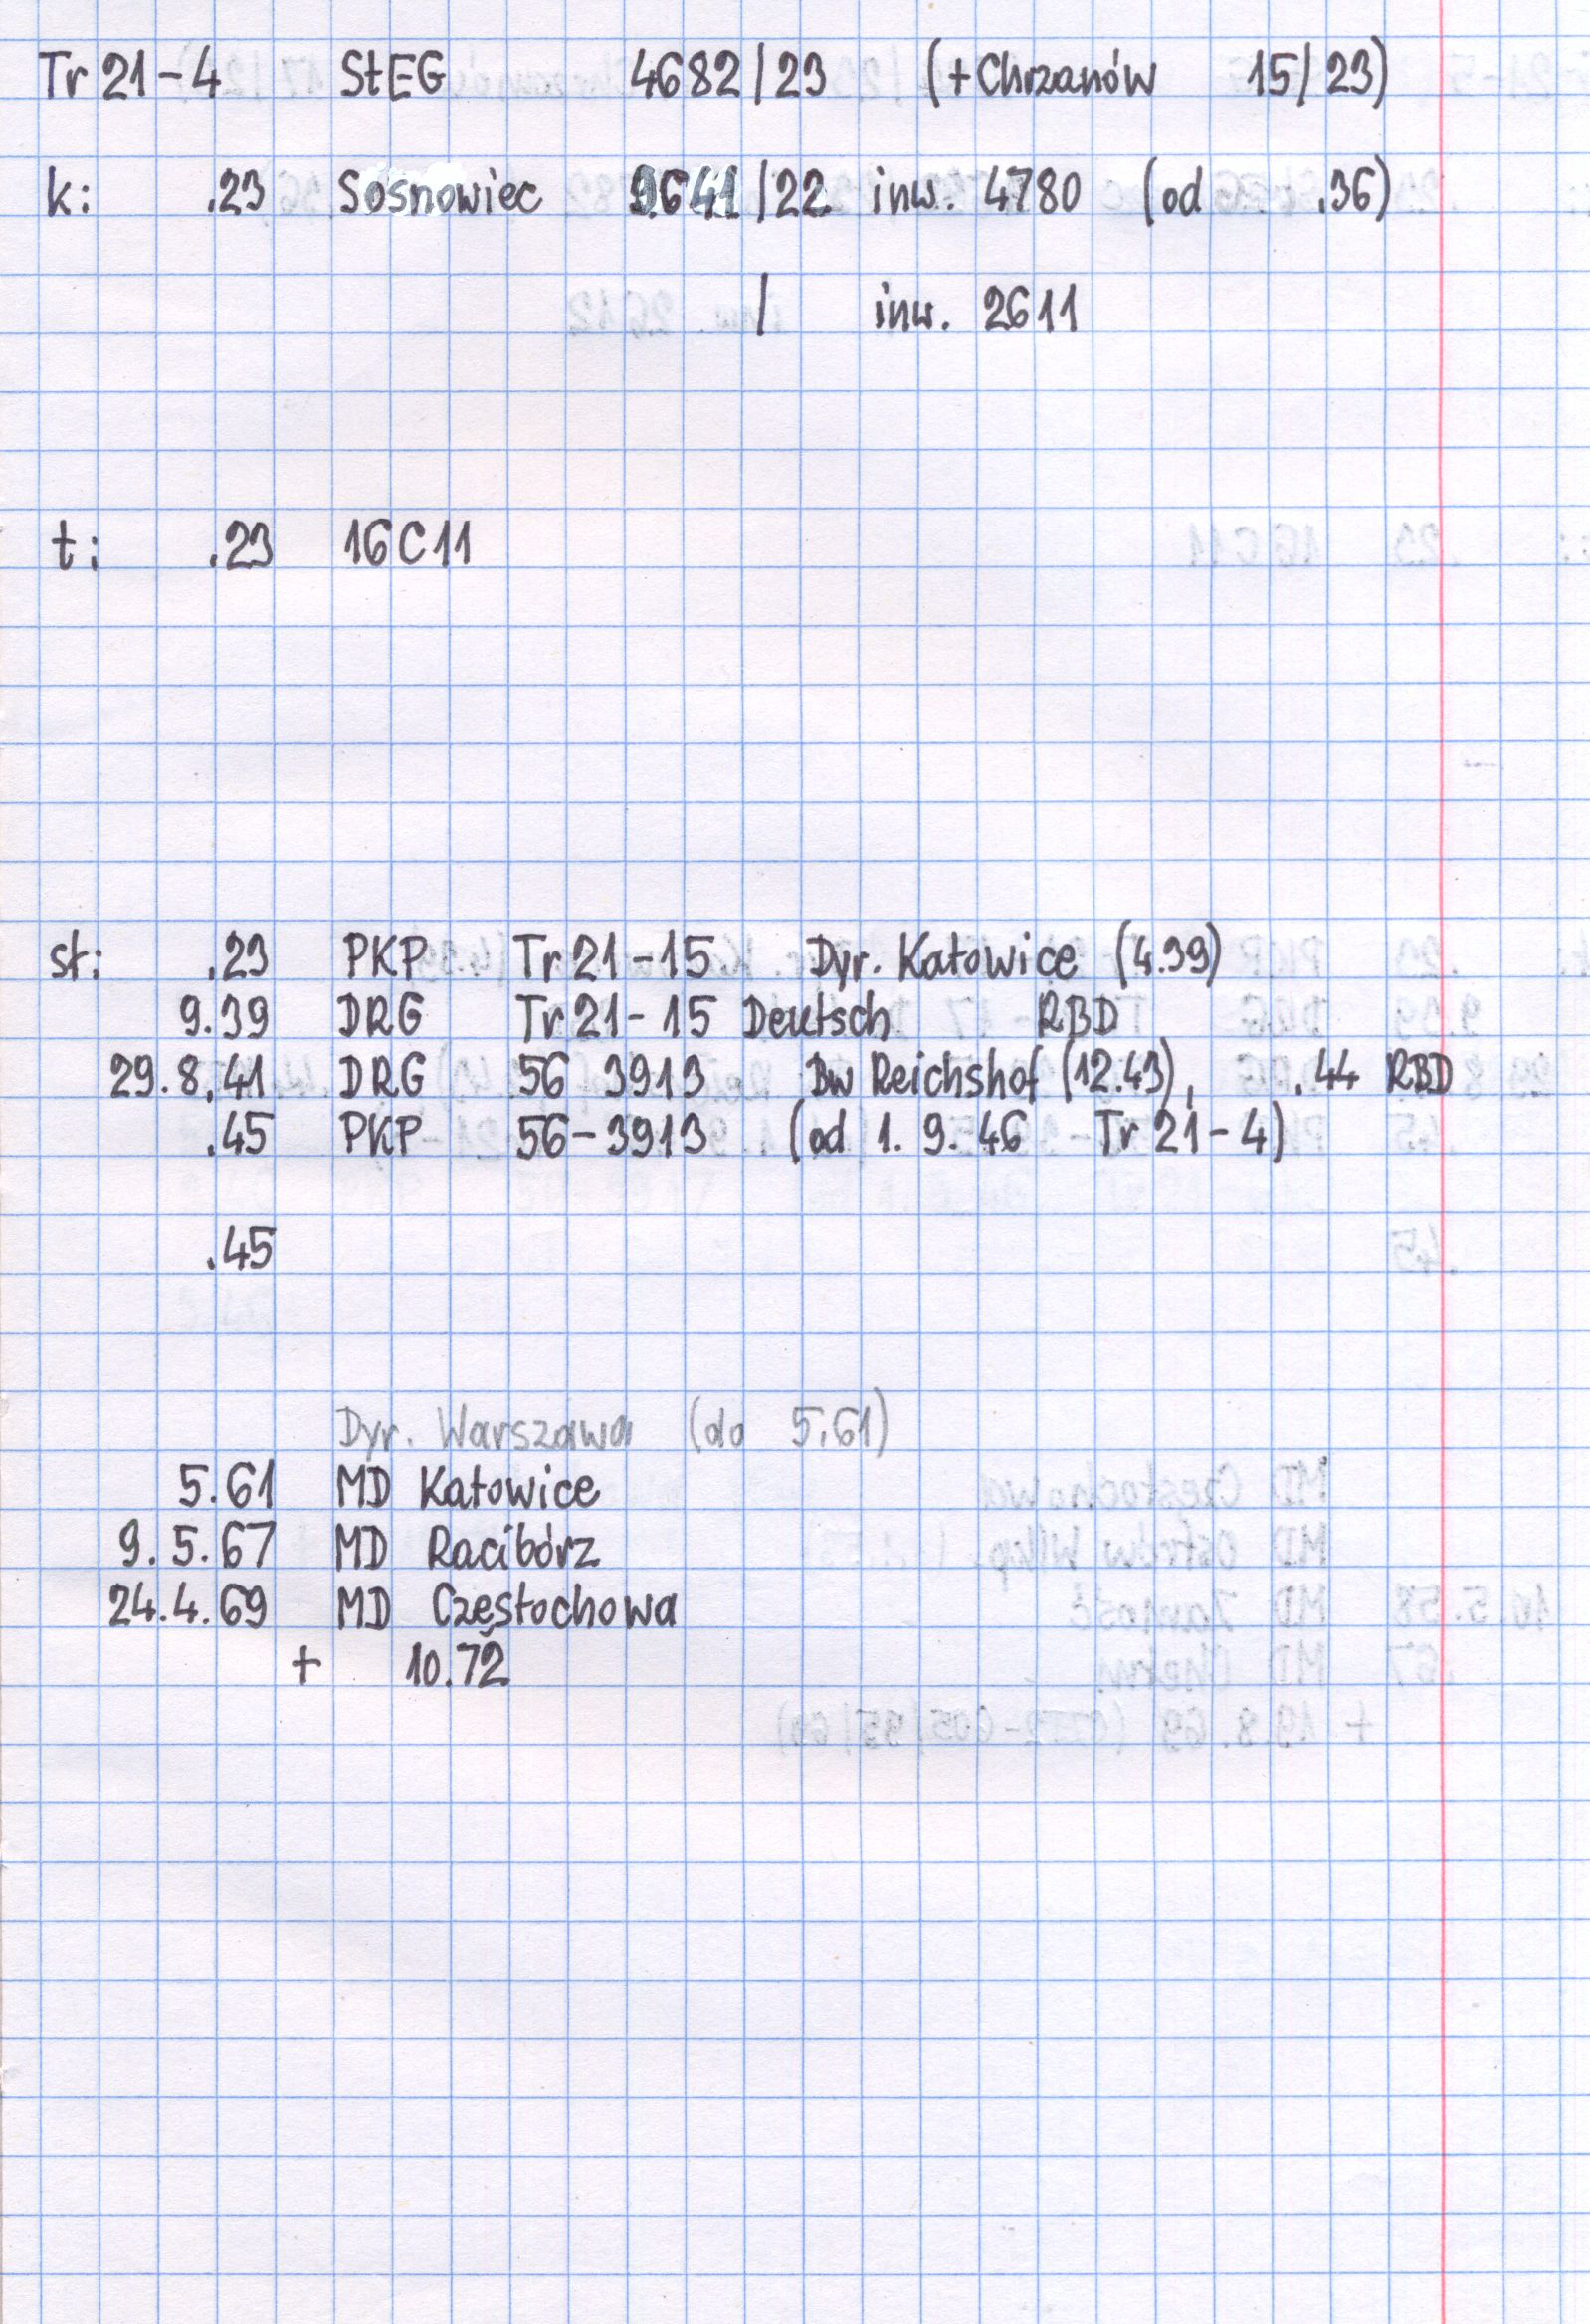 Tr 21-4 StEG 4682/23 (+Chrzanów 15/23)
k: .23 Sosnowiec 9641/22 inw. 4780 (od .36)
/ inw. 2611
t: .23 16C11
st: .23 PKP Tr 21-15 Dyr. Katowice (4.39)
9.39 DRG Tr 21-15 Deutsch RBD
29.8.41 DRG 56 3913 Bw Reichshof (12.43), .44 RBD
.45 PKP 56-3913 (od 1.9.46 Tr 21-4)
.45
Dyr. Warszawa (do 5.61)
5.61 MD Katowice
9.5.67 MD Racibórz
24.4.69 MD Częstochowa
+ 10.72